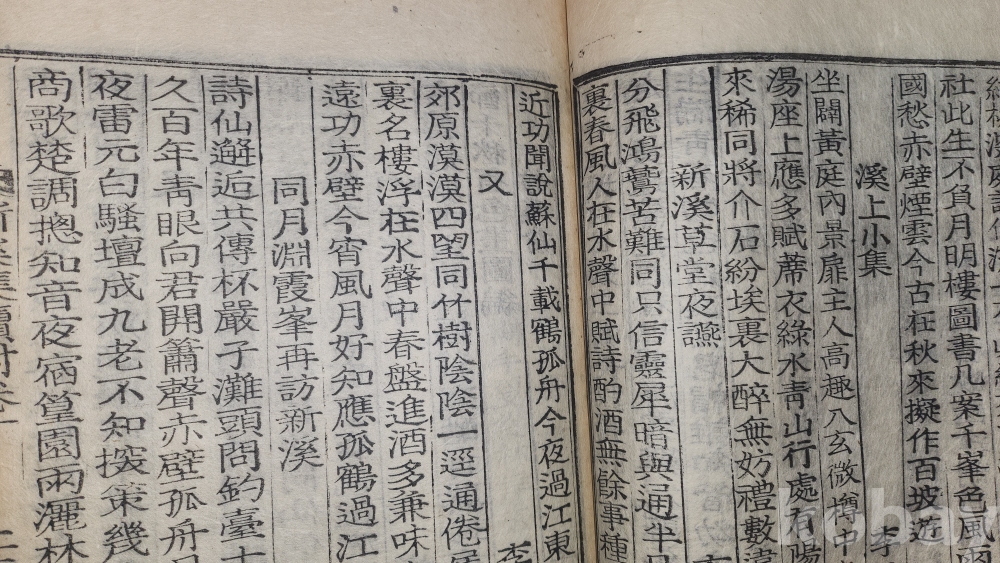 社此生不負月明樓圖書几案千峯色風
國愁赤壁煙雲今古在秋來擬作百坡遊
溪上小集 李
坐闢黃庭內景扉主人高趣入玄微樽中
湯座上應多賦蓆衣綠水靑山行處有陽
來稀同將介石紛埃裏大醉無妨禮數違
新溪草堂夜讌
分飛鴻鶩苦難同只信靈犀暗與通半
裏春風人在水聲中賦詩酌酒無餘事種
近功聞說蘇仙千載鶴孤舟今夜過江東
又 李
郊原漠漠四望同竹樹陰陰一逕通倦
裏名樓浮在水聲中春盤進酒多兼味
遠功赤壁今宵風月好知應孤鶴過江
同月淵霞峯再訪新溪
詩仙邂逅共傳杯嚴子灘頭問釣臺十
久百年靑眼向君開簫聲赤壁孤舟
夜雷元白騷壇成九老不知投策幾
商歌楚調摠知音夜宿篁園雨灑林